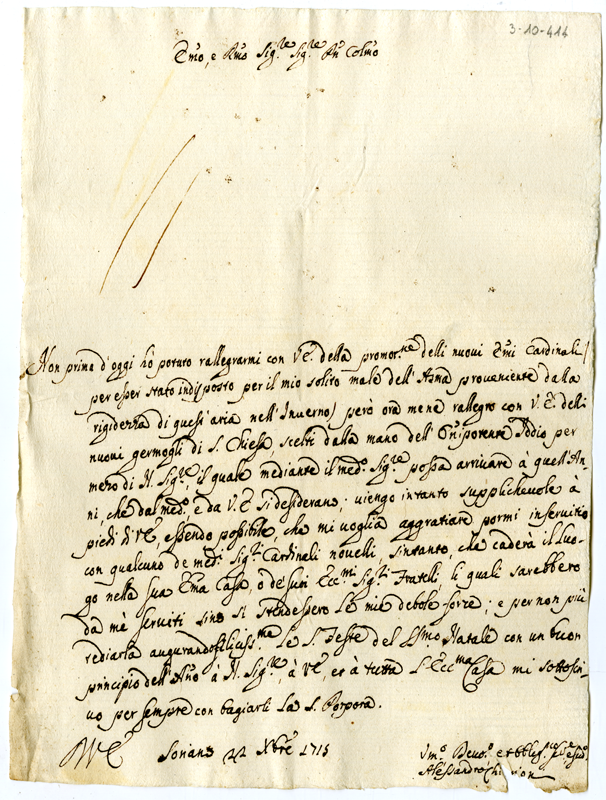 3-10-414
Emo, e Rmo Sig.re Sig.re Pn Colmo
Non prima d'oggi hò potuto rallegrarmi con VE. della promot.ne delli nuovi Emi Cardinali /
per esser stato indisposto per il mio solito male dell'Asma proveniente dalla
rigidezza di quest'aria nell'Inverno) però ora mene rallegro con V.E. delli
nuovi germogli di S. Chiesa, scelti dalla mano dell'Onipotente Iddio per
mezo di N. Sig.re, il quale mediante il med.o Sig.re possa arrivare à quell'An-
ni, che dal med.o e da V.E. si desiderano; vengo intanto supplichevole à
piedi di VE, essendo possibile, che mi voglia aggratiare pormi in servitio
con qualcuno de med.i Sig.ri Cardinali novelli, sintanto, che caderà il luo-
go nella sua Ema Casa, ò de suoi Ecc.mi Sig.ri Fratelli, li quali sarebbero
da mè serviti sino si stendessero le mie debole forze; e per non più
tediarla augurandoli feliciss.me le S. Feste del SSmo Natale con un buon
principio dell'Año à N. Sig.re à VE, et à tutta l'Ecc.ma Casa mi sottoscri-
vo per sempre con bagiarli la S. Porpora.
Di VE
Soriano 22 Xbre 1715
Vm.o Devo.o et obblig.o
Alessandro